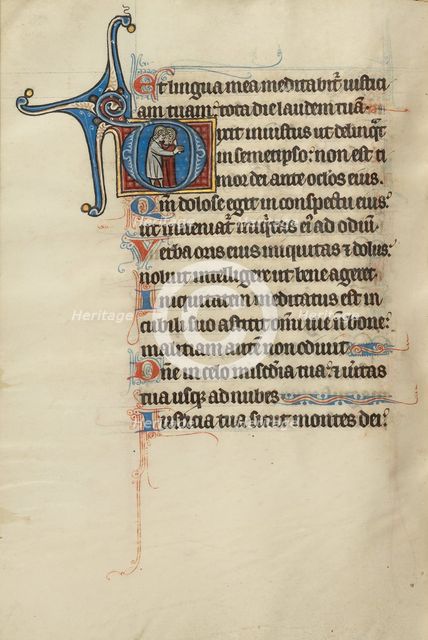 Et lingua mea meditabit᷑ iustici
am tuam: tota die laudem tuā.
Dixit iniustus ut delinq̄t
in semetipso: non est ti
mor dei ante oclos eius.
Qm̄ dolose egit in conspectu eius:
ut inueniat᷑ iniq̇tas eī ad odiū.
Verba oris eius iniquitas ⁊ dolus:
noluit intelligere ut bene ageret.
Iniquitatem meditatus est in
cubili suo astitit om̄i uie n̄ bone:
maliciam autē non odiuit
Dn̄e in celo mis̄cdia tua: ⁊ ūitas
tua usq; ad nubes
Iusticia tua sicut montes dei:
Heritage Images